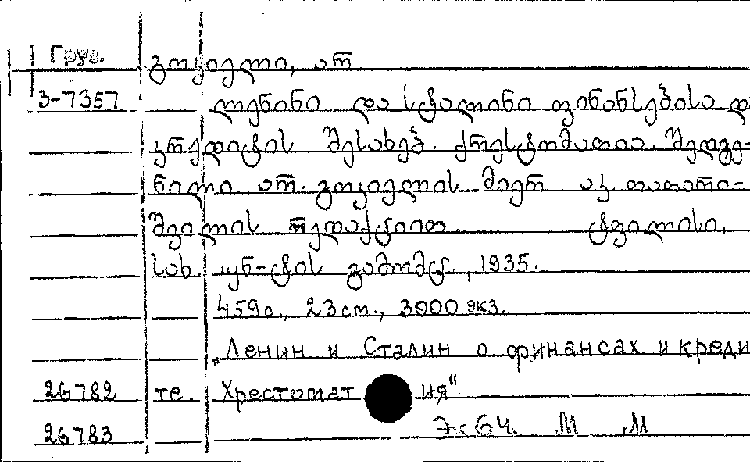 Груз.
3-7357
ლენინი და სტალინი ფინანსებისა დ
კრედიტის შესახებ. ქრესტომათია. შედგე-
ნილი არ. მიერ აკ. თათარი-
შვილის რედაქციით ტფილისი,
სახ. უნ-ტის გამომც., 1935.
459 с., 23 см., 3000 экз.
„Ленин и Сталин о финансах и креди
26782 те. Хрестомат ия“
26783 М М